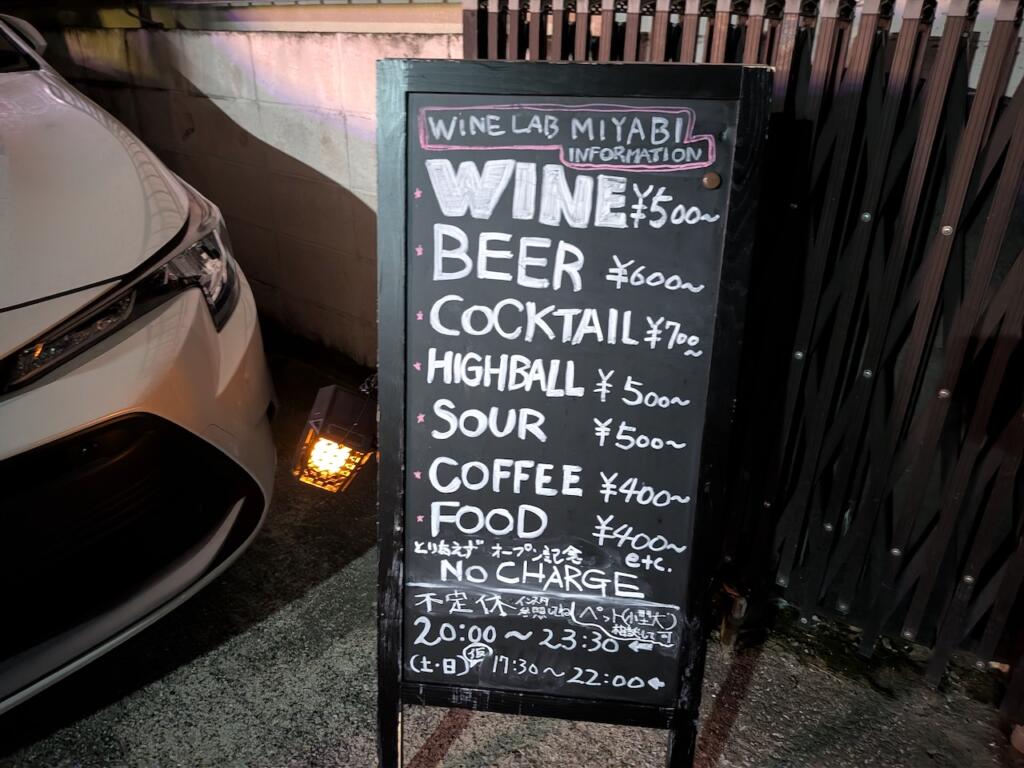 WINE LAB MIYABI
INFORMATION
WINE ¥500~
BEER ¥600~
COCKTAIL ¥700~
HIGHBALL ¥500~
SOUR ¥500~
COFFEE ¥400~
FOOD ¥400~
etc.
とりあえず オープン記念
NO CHARGE
不定休 インスタ参照してね ペット(小型犬)
相談して可
20:00~23:30
(土・日) 仮 17:30~22:00